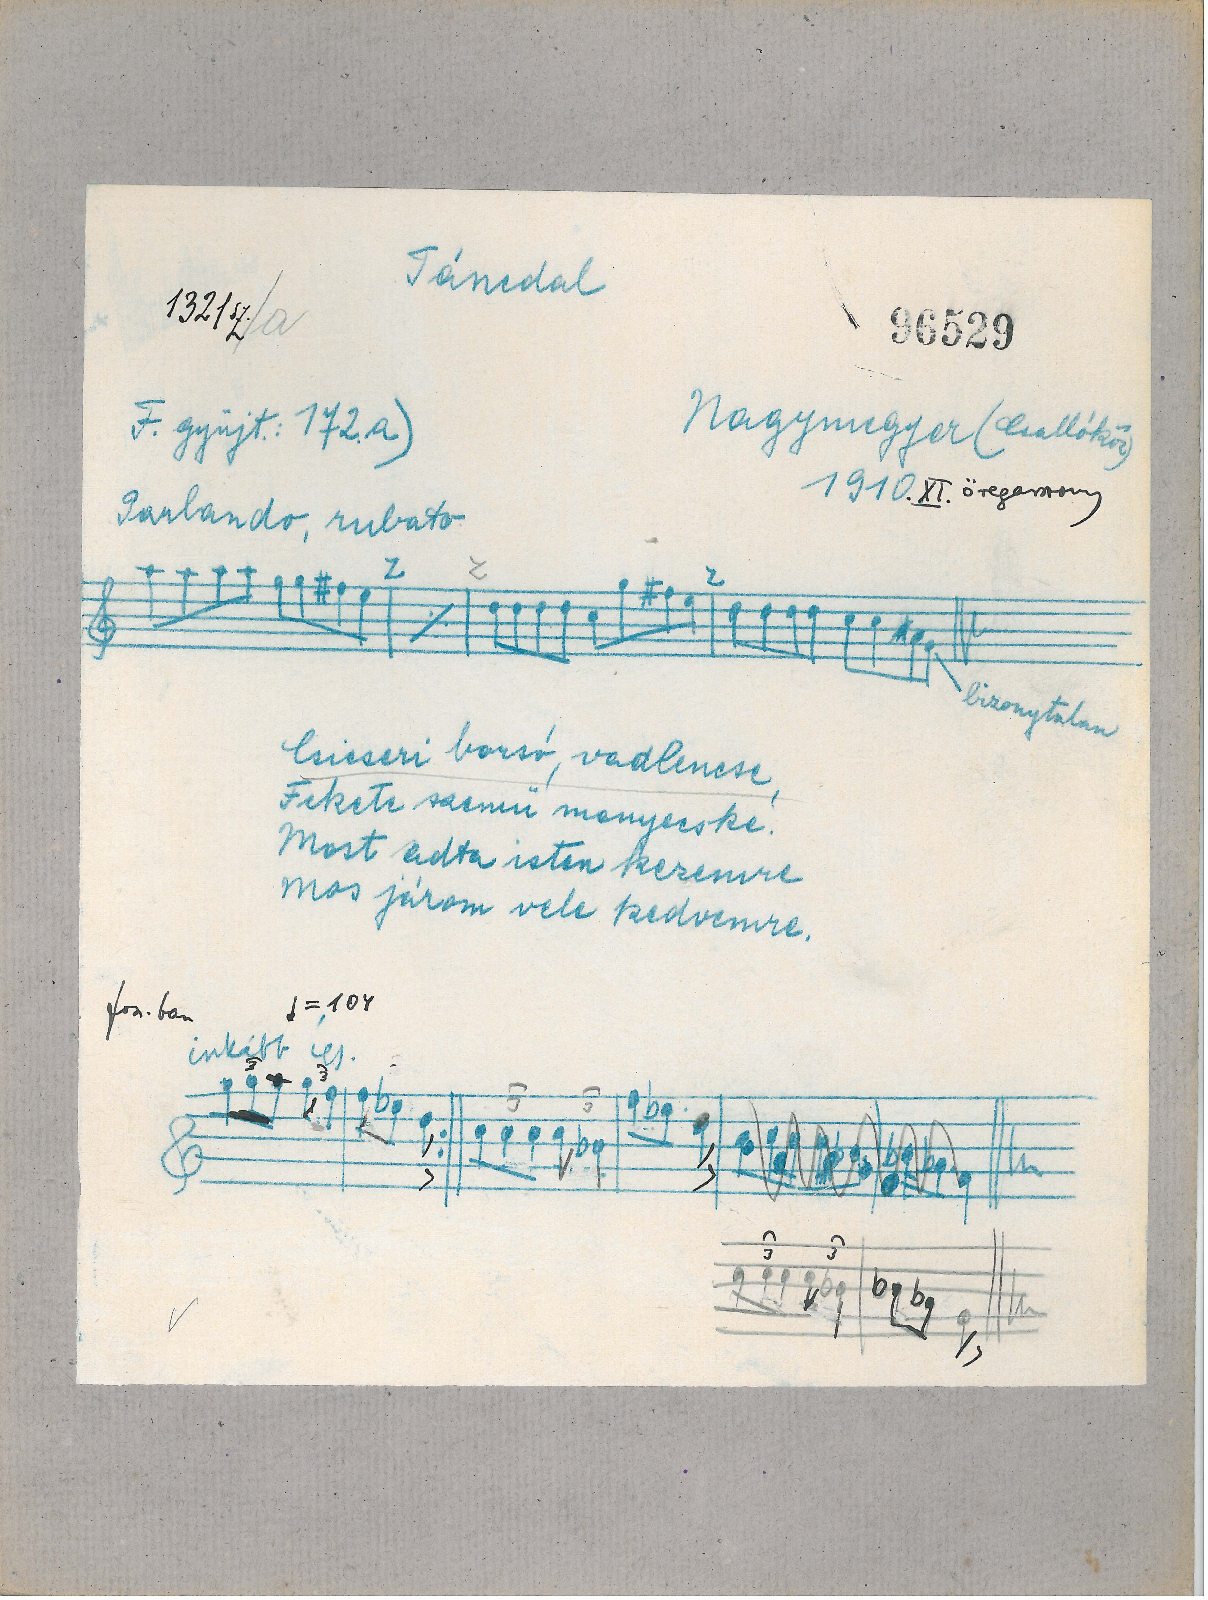 Táncdal
1321 sz./a
96529
F. gyüjt.: 172.a)
Nagymegyer (Csallóköz)
1910. XI. öregasszony
Parlando, rubato
bizonytalan
Csicseri borsó, vadlencse,
Fekete szemü menyecske.
Most adta isten kezemre
Mos járom vele kedvemre.
fon.-ban ♩=104
inkább így.
3 3
3 3
3 3